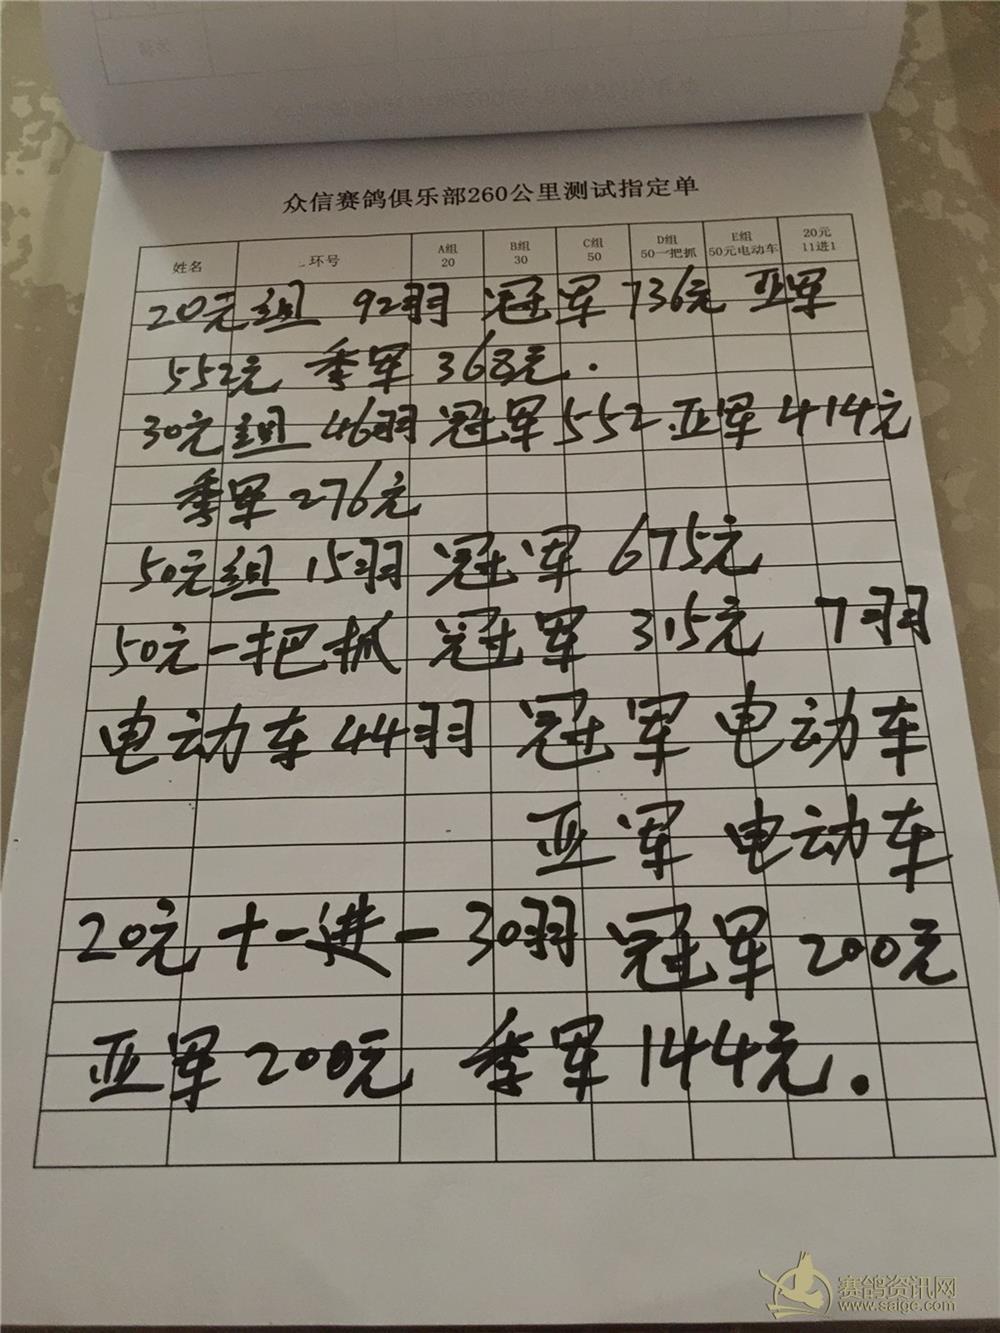 众信赛鸽俱乐部260公里测试指定单
姓名 环号 A组 20 B组 30 C组 50 D组 50一把抓 E组 50元电动车 20元 11进1
20元组 92羽 冠军736元 亚军
552元 季军368元.
30元组 46羽 冠军552.亚军414元
季军276元
50元组 15羽 冠军 675元
50元一把抓 冠军 315元 7羽
电动车44羽 冠军 电动车
亚军 电动车
20元 十一进一 30羽 冠军 200元
亚军 200元 季军 144元.
赛鸽资讯网
www.saigc.com